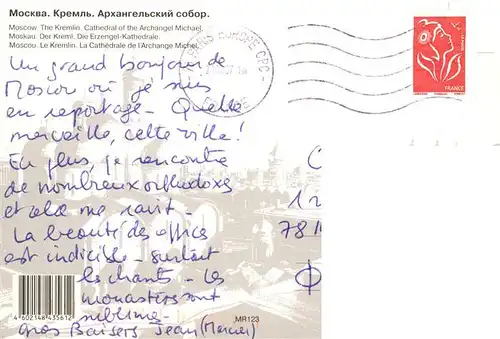 Москва. Кремль. Архангельский собор.
Moscow. The Kremlin. Cathedral of the Archangel Michael.
Moskau. Der Kreml. Die Erzengel-Kathedrale.
Moscou. Le Kremlin. La Cathédrale de l'Archange Michel.
Un grand bonjour de
Moscou où je suis
en reportage - Quelle
merveille, cette ville !
En plus, je rencontre
de nombreux orthodoxes
et cela me ravit -
La beauté des offices
est indicible - surtout
les chants - Les
monastères sont
sublimes -
Gros Baisers Jean (Mercier)
4 602148 435612
MR123
EUROPE CPC
FRANCE